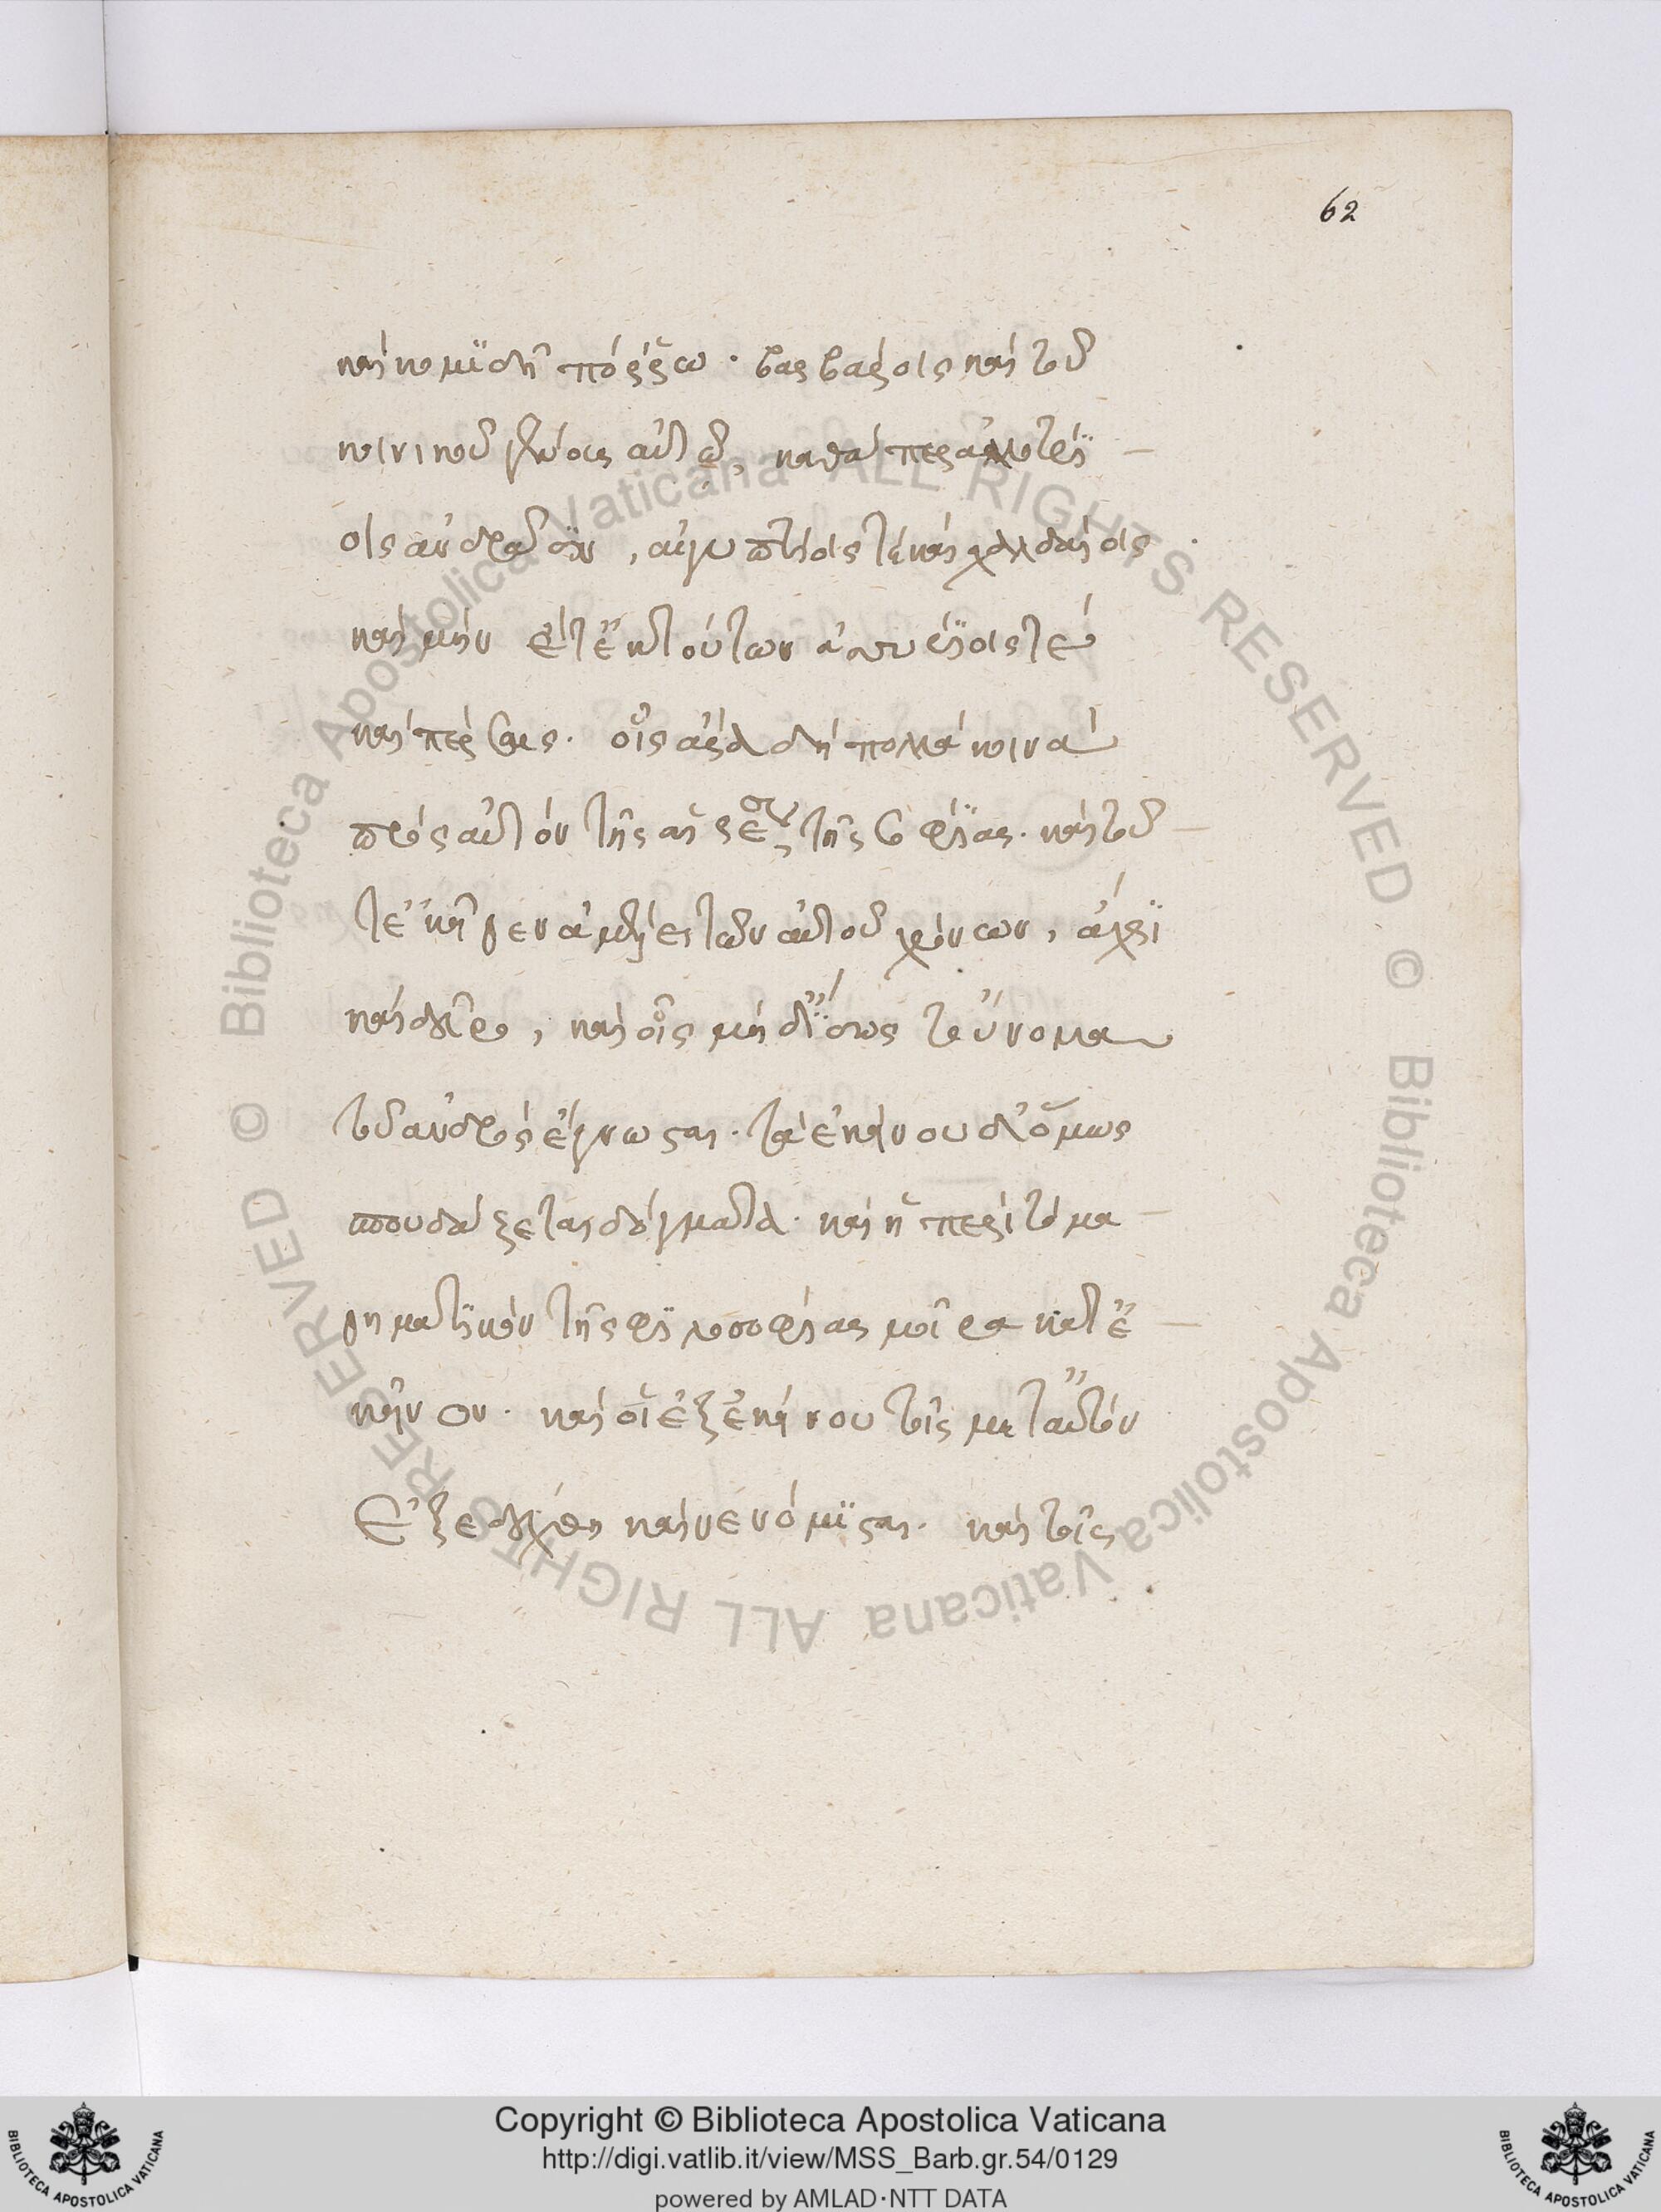 62
καὶ κομιδῆ πόρρω. βαρβάροις καὶ τοῦ
κοινοῦ γένους αὐτῶ, καθάπερ ἀλλοτρί
οις ἀνδράσιν, αἰγυπτίοις τὲ καὶ χαλδαίοις
καὶ μὴν ἔτ' ἐκ τούτων ἀσσυρίοις τὲ
καὶ πέρσαις. οἷς ἄρα δὴ πολλὰ κοινὰ
πρὸς αὐτὸν τῆς αἱρέσεως τῆς σοφίας. καὶ τοῦ
τ' ἐκεῖθεν ἀμέλει τῶν αὐτοῦ χρόνων, ἄχρι
καὶ δεῦρο, καὶ οἷς μηδ' ἴσως τοὔνομα
τοῦ ἀνδρὸς ἔγνωσται. τὰ ἐκείνου δ' ὅμως
σπουδάζεται δόγματα. καὶ ἡ περὶ τὸ μα
θηματικὸν τῆς φιλοσοφίας μοῖρα κατ' ἐ
κεῖνον. καὶ οἷ ἐξ ἐκείνου τοῖς μετ' αὐτὸν
ἐξεδέχθη καὶ νενόμισται. καὶ τοῖς
Copyright © Biblioteca Apostolica Vaticana
http://digi.vatlib.it/view/MSS_Barb.gr.54/0129
powered by AMLAD·NTT DATA
BIBLIOTECA APOSTOLICA VATICANA
BIBLIOTECA APOSTOLICA VATICANA
Biblioteca Apostolica Vaticana ALL RIGHTS RESERVED © Biblioteca Apostolica Vaticana ALL RIGHTS RESERVED ©